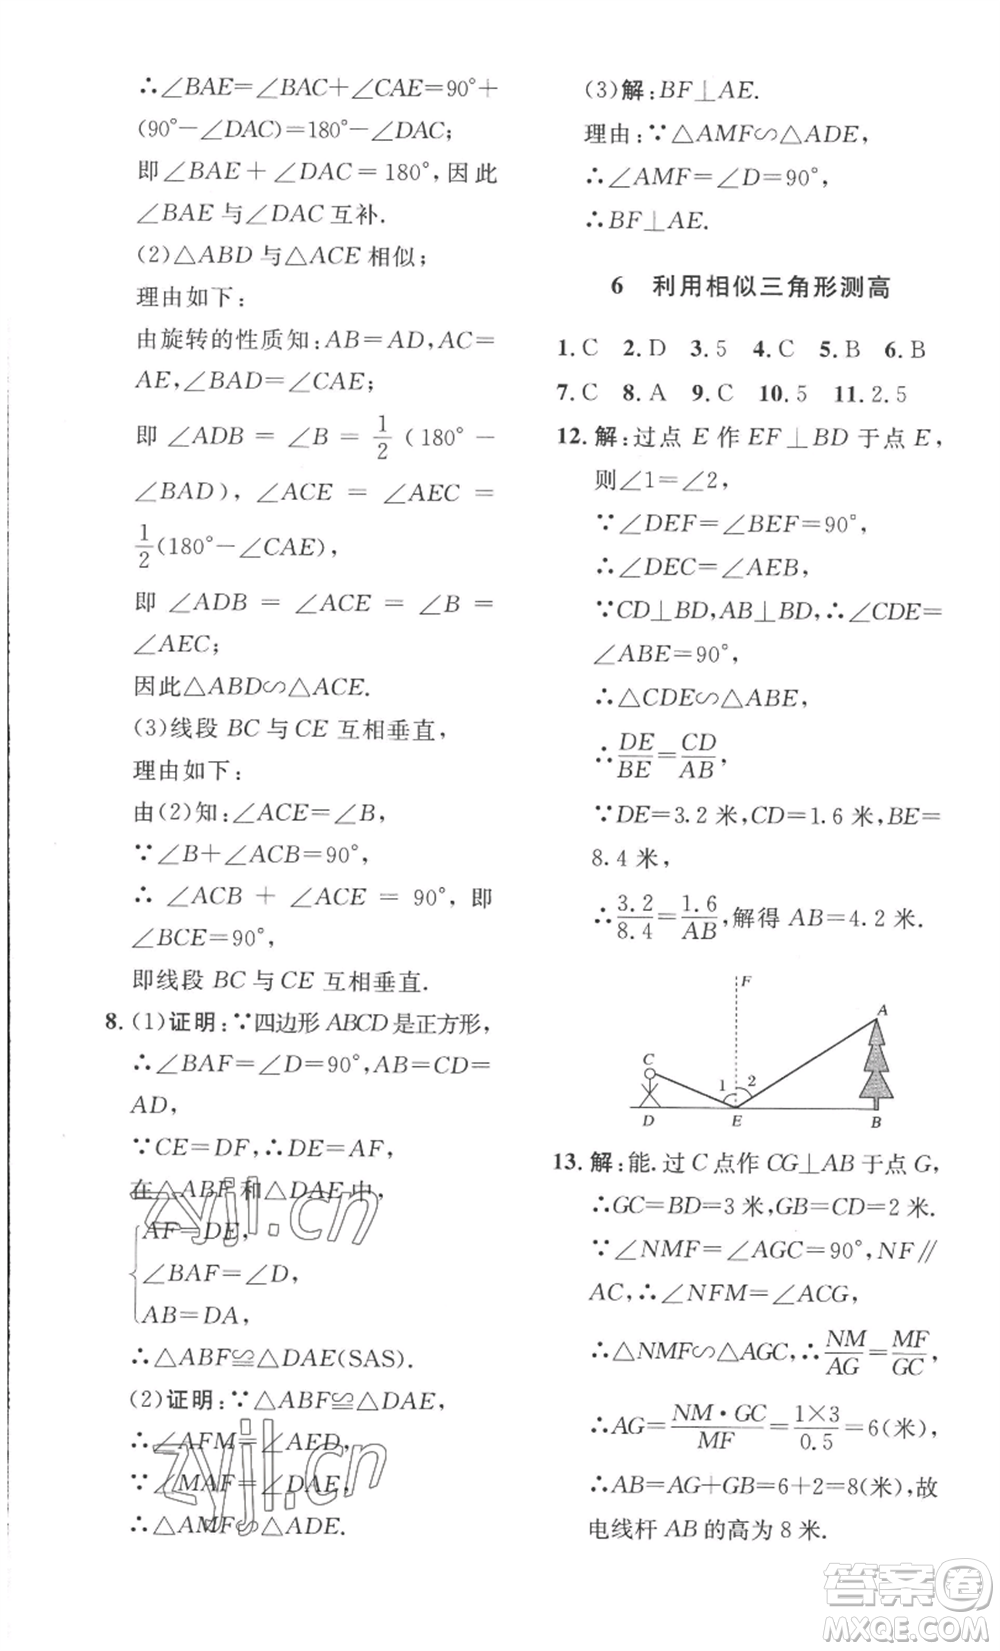 ∴∠BAE=∠BAC+∠CAE=90°+
(90°-∠DAC)=180°-∠DAC;
即∠BAE+∠DAC=180°,因此
∠BAE与∠DAC互补.
(2)△ABD与△ACE相似;
理由如下:
由旋转的性质知:AB=AD,AC=
AE,∠BAD=∠CAE;
即 ∠ADB = ∠B = 1/2 (180°-
∠BAD), ∠ACE = ∠AEC =
1/2(180°-∠CAE),
即 ∠ADB = ∠ACE = ∠B =
∠AEC;
因此△ABD∽△ACE.
(3)线段BC与CE互相垂直,
理由如下:
由(2)知:∠ACE=∠B,
∵∠B+∠ACB=90°,
∴ ∠ACB + ∠ACE = 90°,即
∠BCE=90°,
即线段BC与CE互相垂直.
8.(1)证明:∵四边形ABCD是正方形,
∴∠BAF=∠D=90°,AB=CD=
AD,
∵CE=DF,∴DE=AF,
在△ABF和△DAE中,
AF=DE,
∠BAF=∠D,
AB=DA,
∴△ABF≌△DAE(SAS).
(2)证明:∵△ABF≌△DAE,
∴∠AFM=∠AED,
∵∠MAF=∠DAE,
∴△AMF∽△ADE.
(3)解:BF⊥AE.
理由:∵△AMF∽△ADE,
∴∠AMF=∠D=90°,
∴BF⊥AE.
6 利用相似三角形测高
1.C 2.D 3.5 4.C 5.B 6.B
7.C 8.A 9.C 10.5 11.2.5
12.解:过点E作EF⊥BD于点E,
则∠1=∠2,
∵∠DEF=∠BEF=90°,
∴∠DEC=∠AEB,
∵CD⊥BD,AB⊥BD,∴∠CDE=
∠ABE=90°,
∴△CDE∽△ABE,
∴DE/BE=CD/AB,
∵DE=3.2米,CD=1.6米,BE=
8.4米,
∴3.2/8.4=1.6/AB,解得AB=4.2米.
F
A
C
1 2
D E B
13.解:能.过C点作CG⊥AB于点G,
∴GC=BD=3米,GB=CD=2米.
∵∠NMF=∠AGC=90°,NF∥
AC,∴∠NFM=∠ACG,
∴△NMF∽△AGC,∴NM/AG=MF/GC,
∴AG=NM·GC/MF=1×3/0.5=6(米),
∴AB=AG+GB=6+2=8(米),故
电线杆AB的高为8米.
zyjl.cn
zyjl.cn
答案卷
MXQE.COM